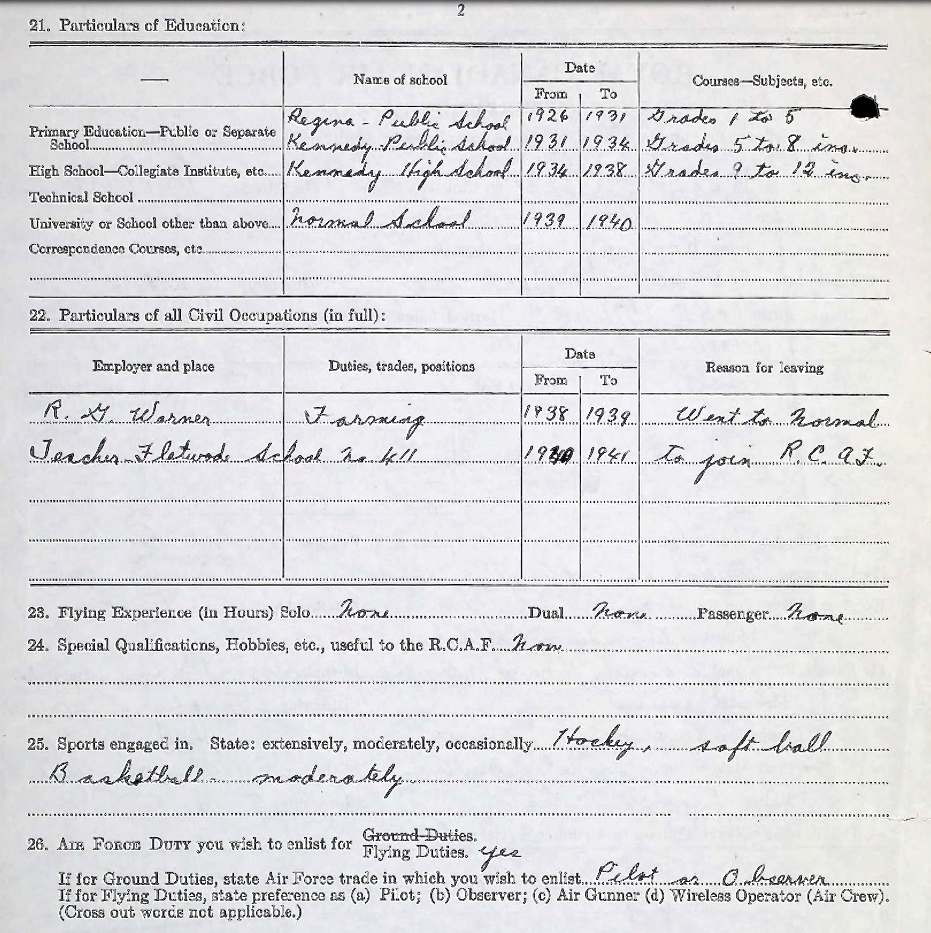 2
21. Particulars of Education:
Name of school
Date
Courses—Subjects, etc.
From To
Regina - Public School 1926 1931 Grades 1 to 5
Primary Education—Public or Separate
School Kennedy Public School 1931 1934 Grades 5 to 8 inc.
High School—Collegiate Institute, etc. Kennedy High School 1934 1938 Grades 9 to 12 inc.
Technical School
University or School other than above Normal School 1939 1940
Correspondence Courses, etc.
22. Particulars of all Civil Occupations (in full):
Employer and place Duties, trades, positions
Date
Reason for leaving
From To
R. G. Warner Farming 1938 1939 Went to Normal
Teacher - School No 411 1940 1941 to join R.C.A.F.
23. Flying Experience (in Hours) Solo None Dual None Passenger None
24. Special Qualifications, Hobbies, etc., useful to the R.C.A.F. None
25. Sports engaged in. State: extensively, moderately, occasionally Hockey, soft ball
Basketball - moderately
26. AIR FORCE DUTY you wish to enlist for Ground Duties.
Flying Duties. yes
If for Ground Duties, state Air Force trade in which you wish to enlist Pilot or Observer
If for Flying Duties, state preference as (a) Pilot; (b) Observer; (c) Air Gunner (d) Wireless Operator (Air Crew).
(Cross out words not applicable.)